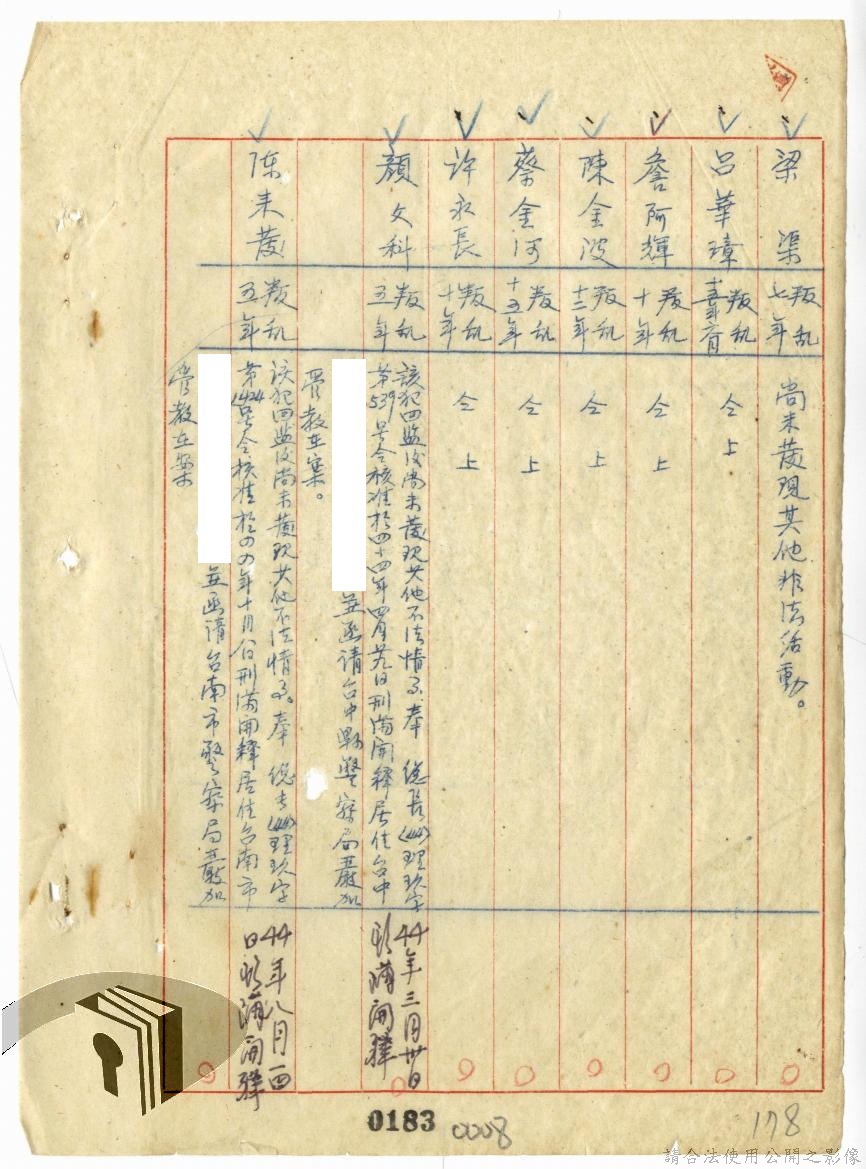 梁渠
叛乱
七年
尚未發現其他非法活動。
呂華璋
叛乱
仝上
詹阿輝
叛乱
十年
仝上
陳金波
叛乱
十二年
仝上
蔡金河
叛乱
十五年
仝上
許永長
叛乱
十年
仝上
顏文科
叛乱
五年
該犯回監後尚未發現其他不法情事奉 總長(44)理玖字
第539号令核准於四十四年四月廿九日刑滿開釋居住台中
並函請台中縣警察局嚴加
管教在案。
44年三月廿日
刑滿開釋
陈来發
叛乱
五年
該犯回監後尚未發現其他不法情事。奉 總長(44)理玖字
第1424号令核准於四四年十月八日刑滿開釋居住台南市
並函請台南市警察局嚴加
管教在案
44年八月四
日刑滿開釋
0183
0008
178
請合法使用公開之影像